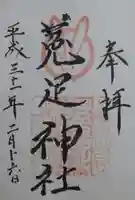 奉拝
菟足神社
平成三一年二月十六日